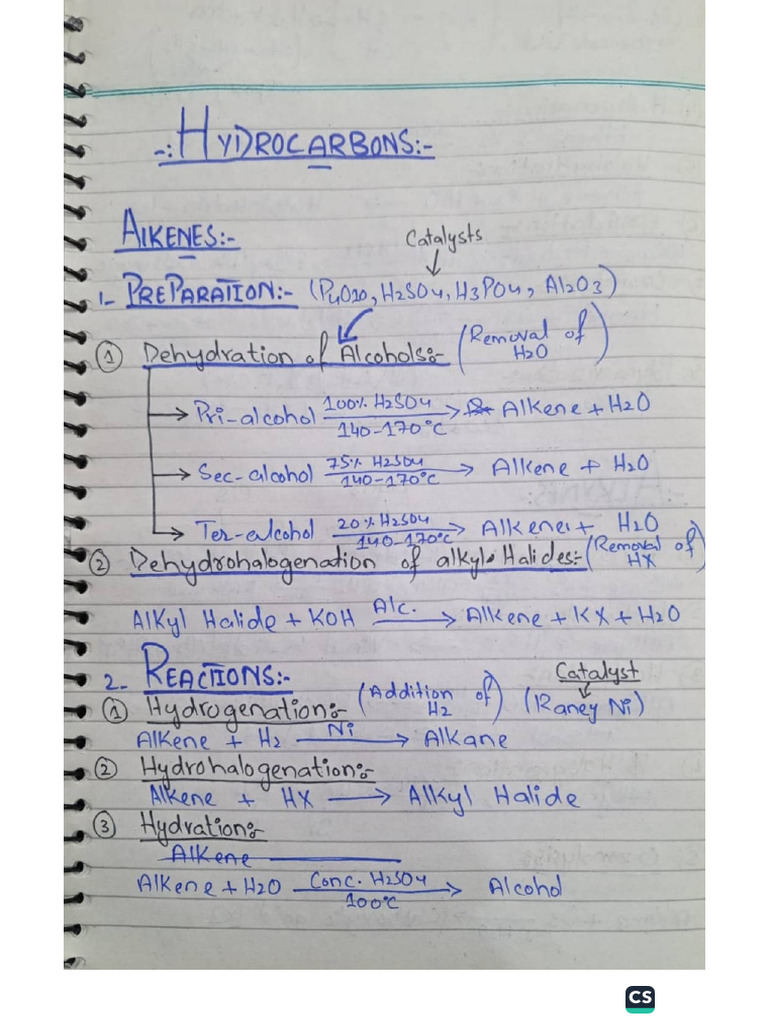 -: HYDROCARBONS:-
ALKENES:-
Catalysts
1- PREPARATION:- (P4O10, H2SO4, H3PO4, Al2O3)
① Dehydration of Alcohols:- (Removal of H2O)
→ Pri-alcohol 100% H2SO4 / 140-170°C → Alkene + H2O
→ Sec-alcohol 75% H2SO4 / 140-170°C → Alkene + H2O
→ Ter-alcohol 20% H2SO4 / 140-170°C → Alkene + H2O
② Dehydrohalogenation of alkyl Halides:- (Removal of HX)
Alkyl Halide + KOH Alc. → Alkene + KX + H2O
2- REACTIONS:-
Catalyst
① Hydrogenation:- (Addition of H2) (Raney Ni)
Alkene + H2 Ni → Alkane
② Hydrohalogenation:-
Alkene + HX → Alkyl Halide
③ Hydration:-
Alkene
Alkene + H2O Conc. H2SO4 / 100°C → Alcohol
CS